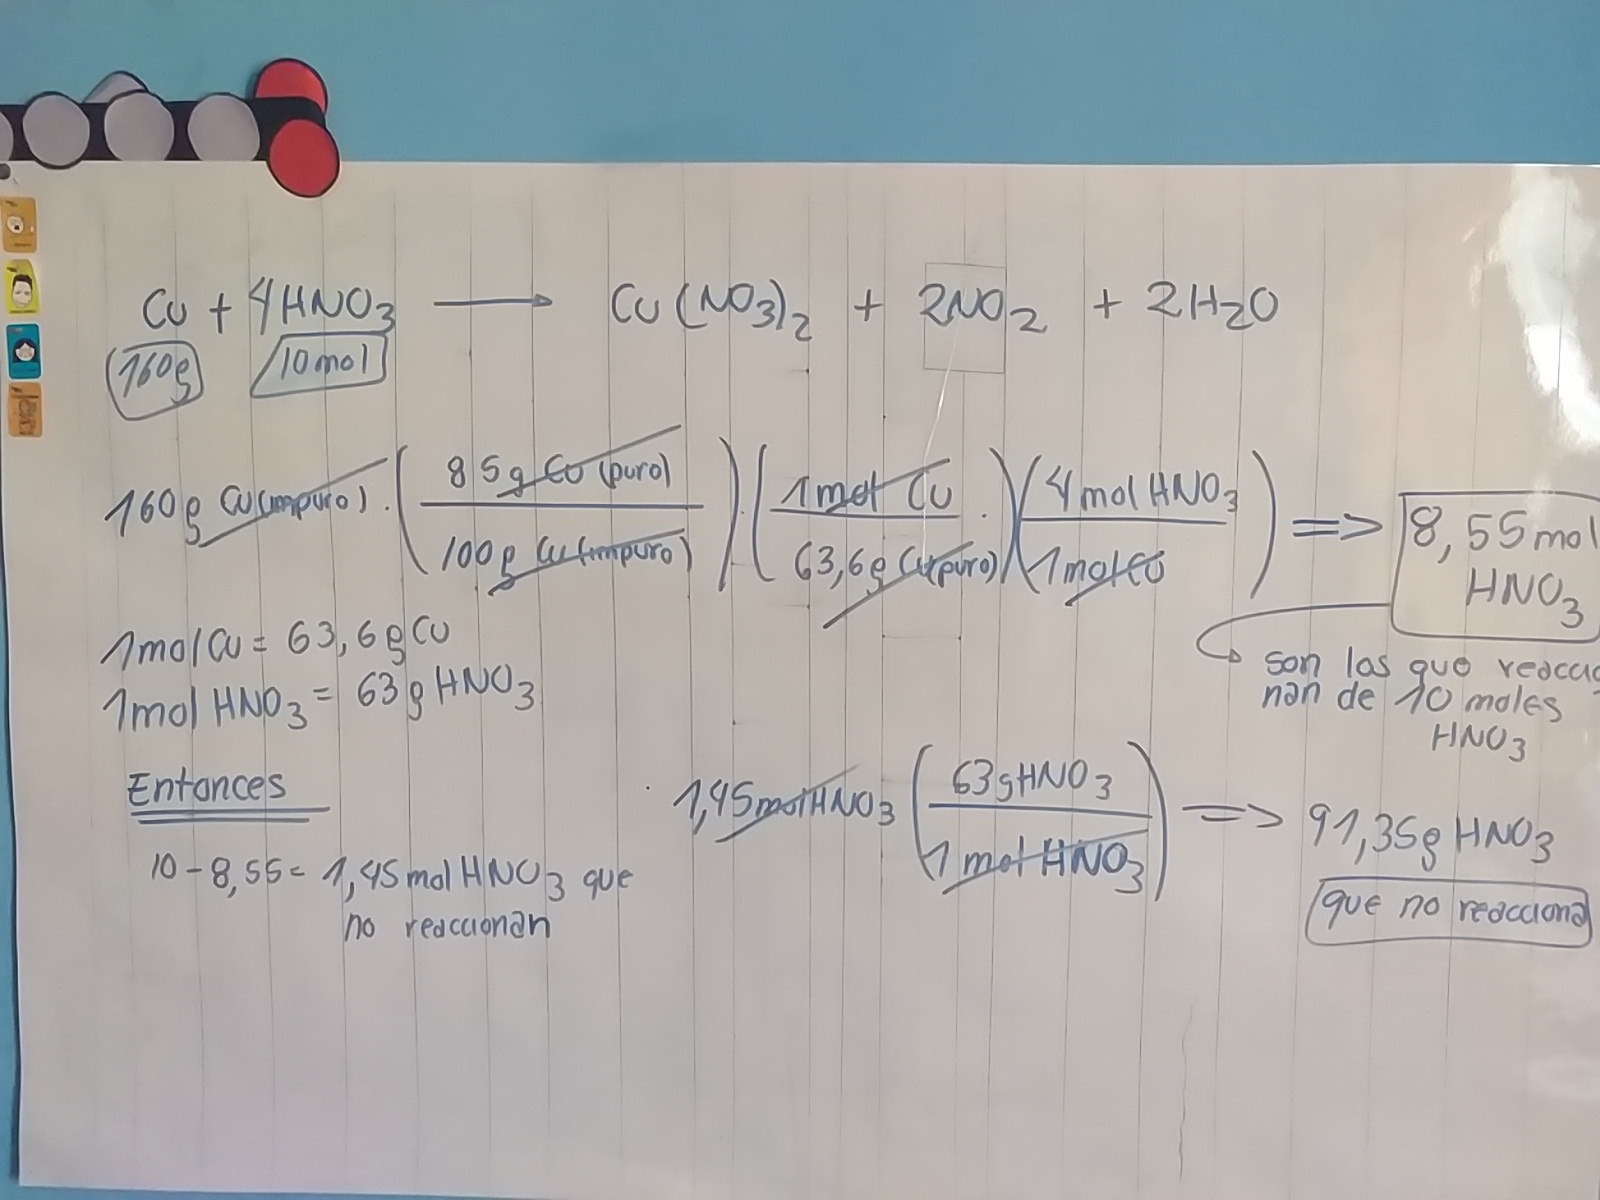 Cu + 4HNO3 → Cu(NO3)2 + 2NO2 + 2H2O
160g 10mol
160g Cu(impuro) . ( 85g Cu (puro) / 100g Cu (impuro) ) . ( 1mol Cu / 63,6g Cu(puro) ) . ( 4mol HNO3 / 1mol Cu ) => 8,55mol HNO3
son las que reaccio
nan de 10 moles
HNO3
1mol Cu = 63,6g Cu
1mol HNO3 = 63g HNO3
Entonces
10 - 8,55 = 1,45mol HNO3 que
no reaccionan
1,45mol HNO3 ( 63g HNO3 / 1mol HNO3 ) => 91,35g HNO3
que no reacciona